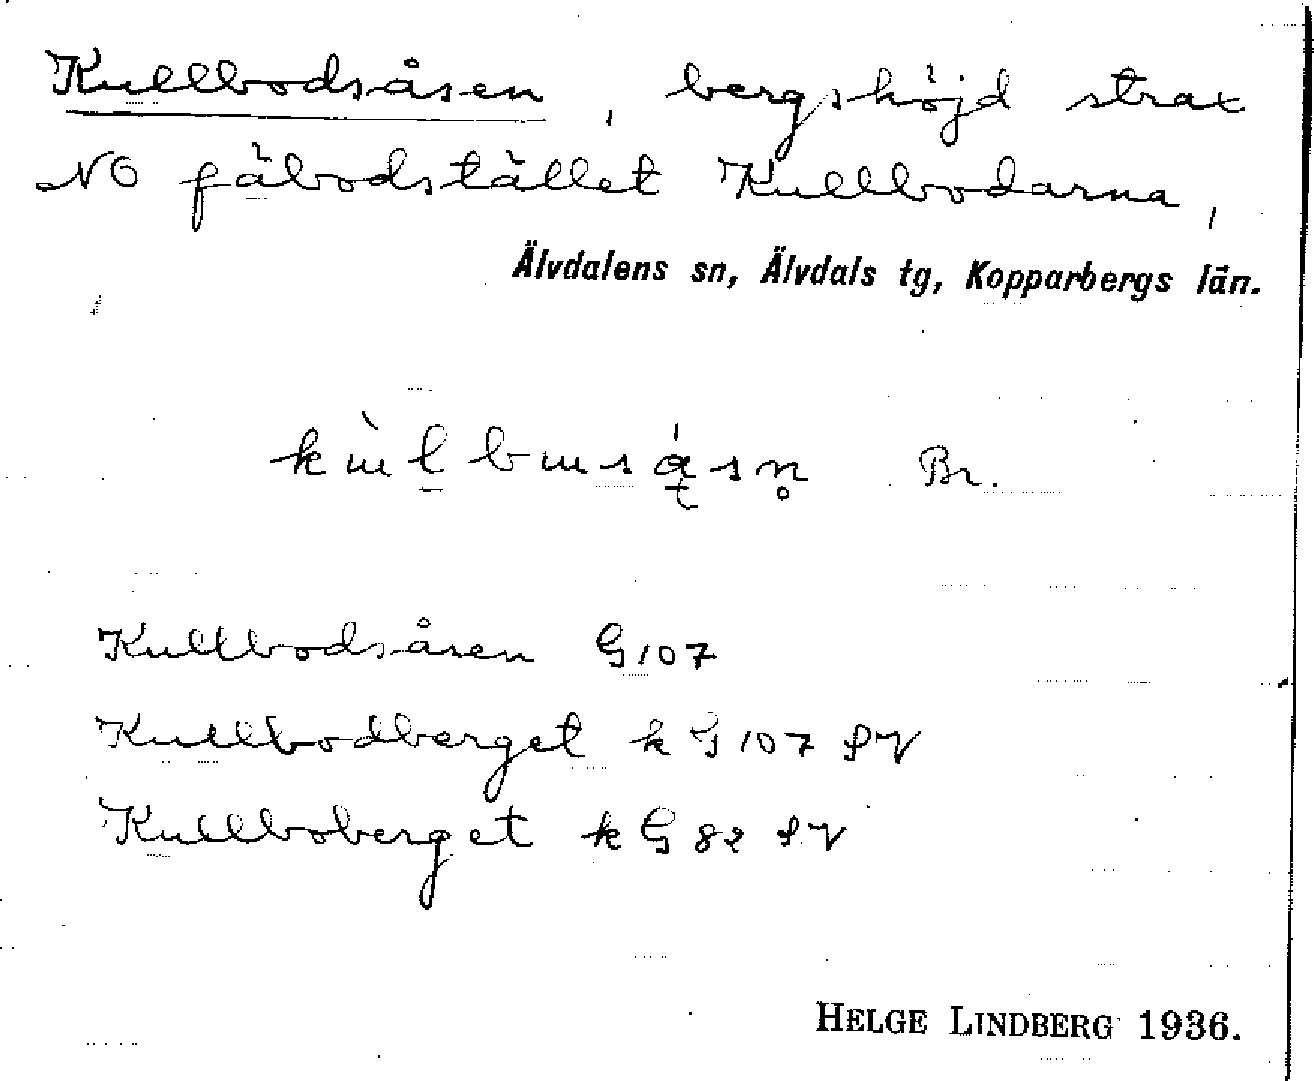 Kullbodsåsen, bergshöjd strax
NO fäbodstället Kullbodarna,
Älvdalens sn, Älvdals tg, Kopparbergs län.
Br.
Kullbodsåsen G 107
Kullbodberget k G 107 SV
Kullboberget k G 82 SV
HELGE LINDBERG 1936.